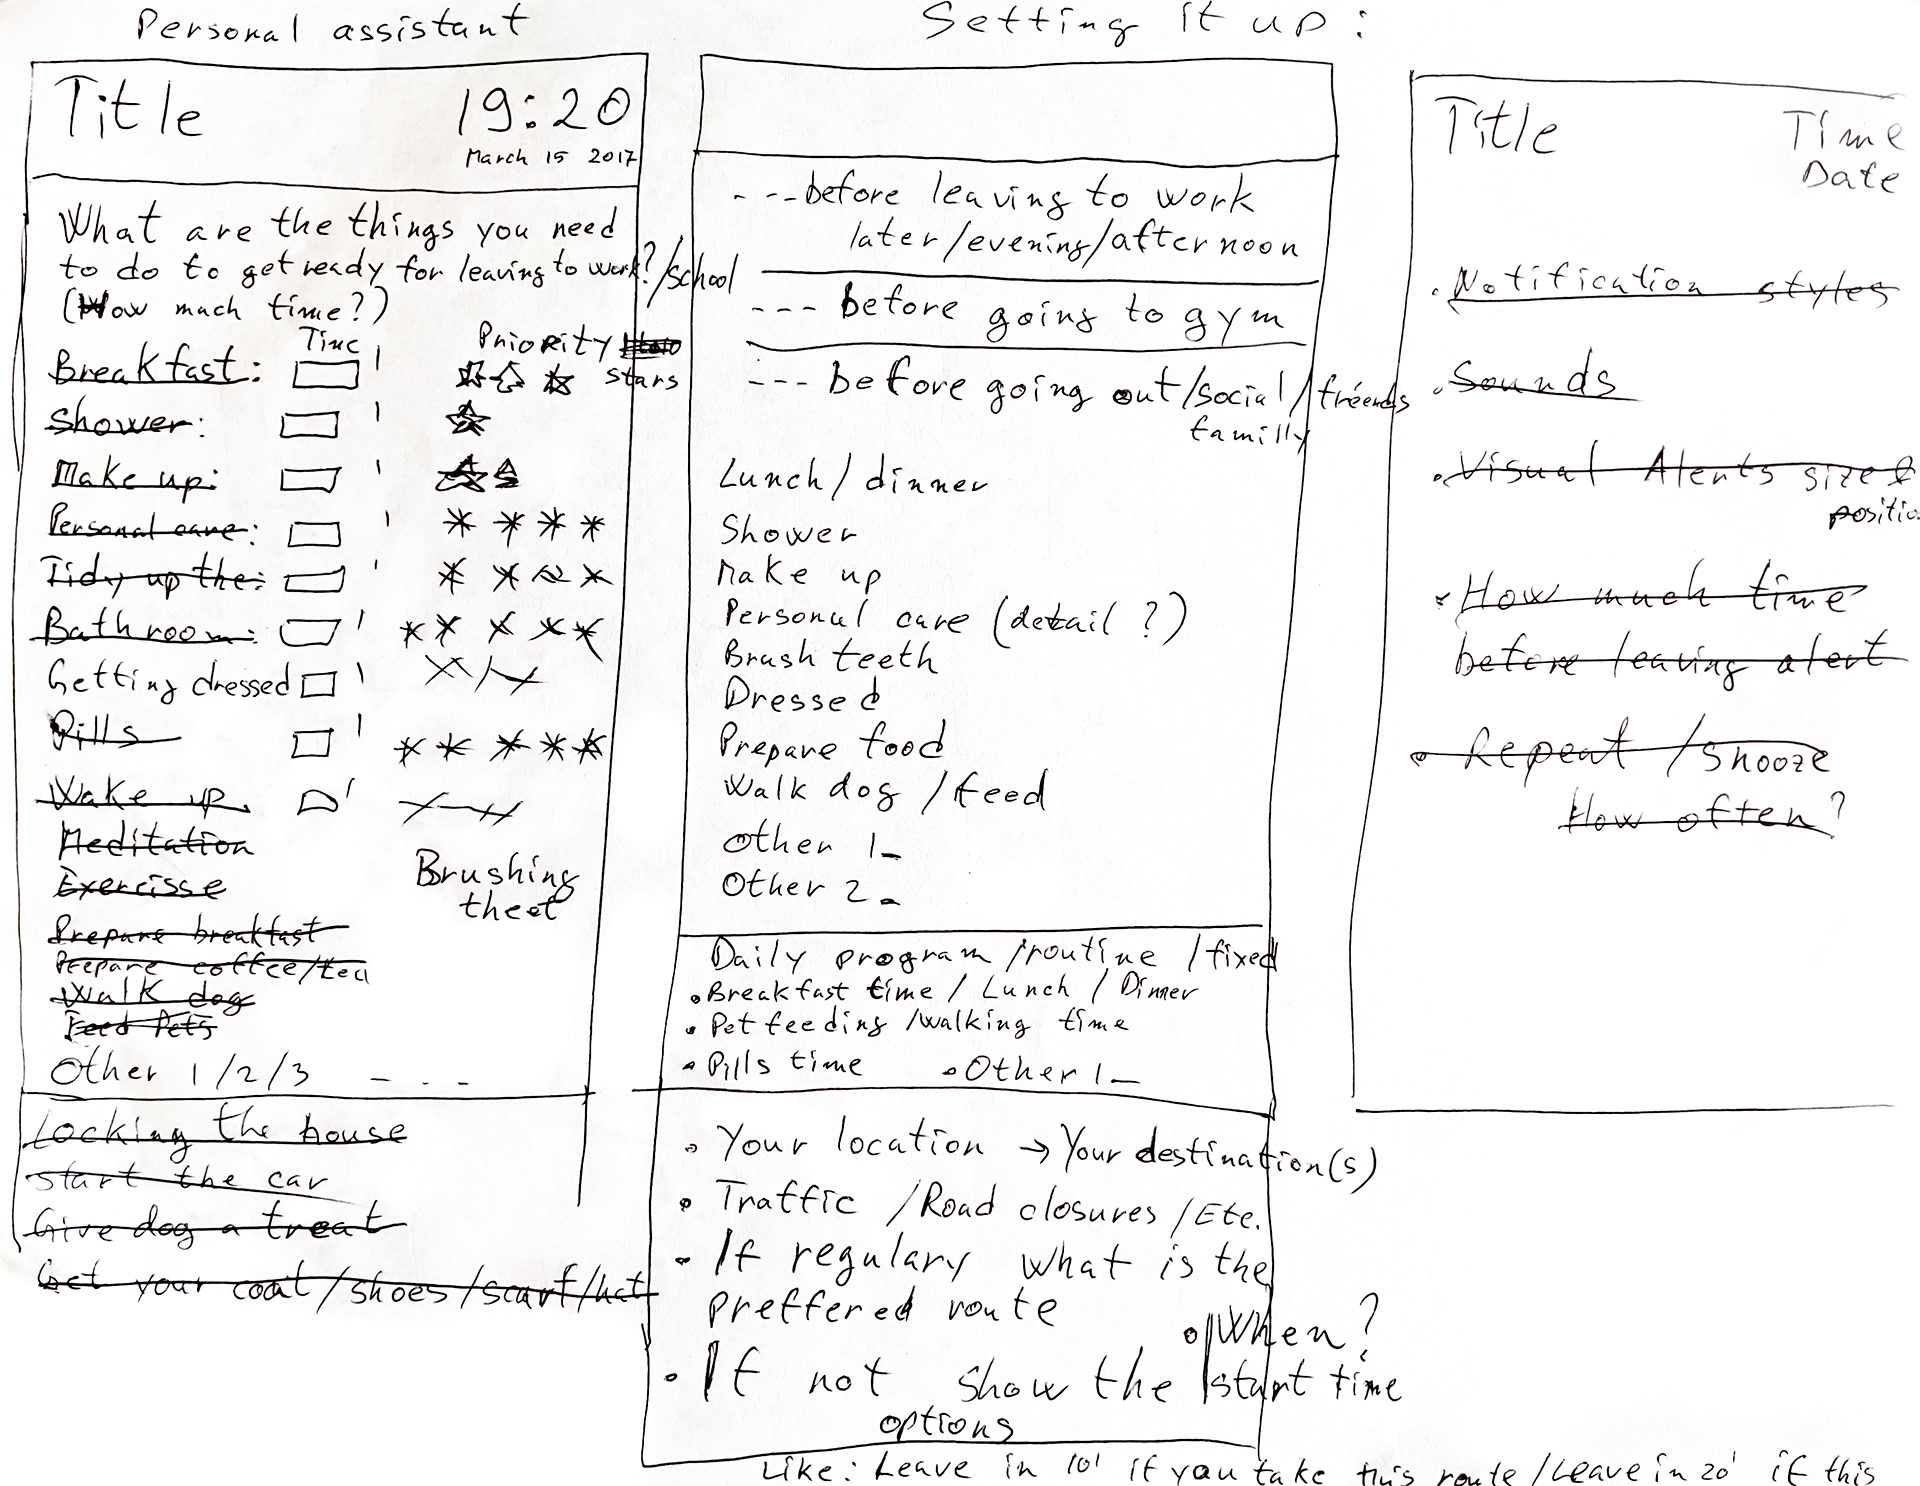 Personal assistant
Title 19:20
March 15 2017
What are the things you need
to do to get ready for leaving to work?/school
(How much time?)
Time Priority
stars
Breakfast:
Shower:
Make up:
Personal care:
Tidy up the:
Bathroom:
Getting dressed
Pills
Wake up
Meditation
Exercisse
Brushing
theet
Prepare breakfast
Prepare coffee/tea
Walk dog
Feed Pets
Other 1/2/3 - - -
Locking the house
start the car
Give dog a treat
Get your coat/shoes/scarf/hat
Setting it up:
- --before leaving to work
later/evening/afternoon
--- before going to gym
--- before going out/social/friends
familly
Lunch/dinner
Shower
Make up
Personal care (detail ?)
Brush teeth
Dressed
Prepare food
Walk dog /feed
Other 1_
Other 2_
Daily program /routine /fixed
•Breakfast time / Lunch / Dinner
• Pet feeding /walking time
• Pills time • Other 1_
• Your location → Your destination(s)
• Traffic /Road closures/Etc.
• If regulary what is the
preffered route
• When?
• If not show the start time
options
Like: Leave in 10' if you take this route/Leave in 20' if this
Title Time
Date
• Notification styles
• Sounds
• Visual Alerts size &
• How much time
before leaving alert
• Repeat /snooze
How often?